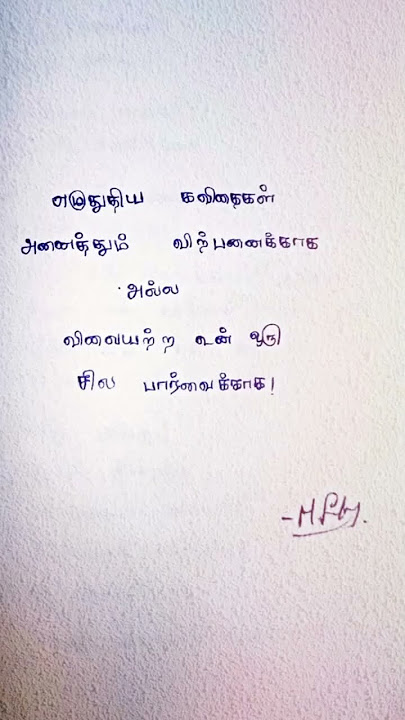 எழுதுகிய கவிதைகள்
அனைத்தும் விற்பனைக்காக
அல்ல
விலையற்ற உன் ஒரு
சில பார்வைக்காக!